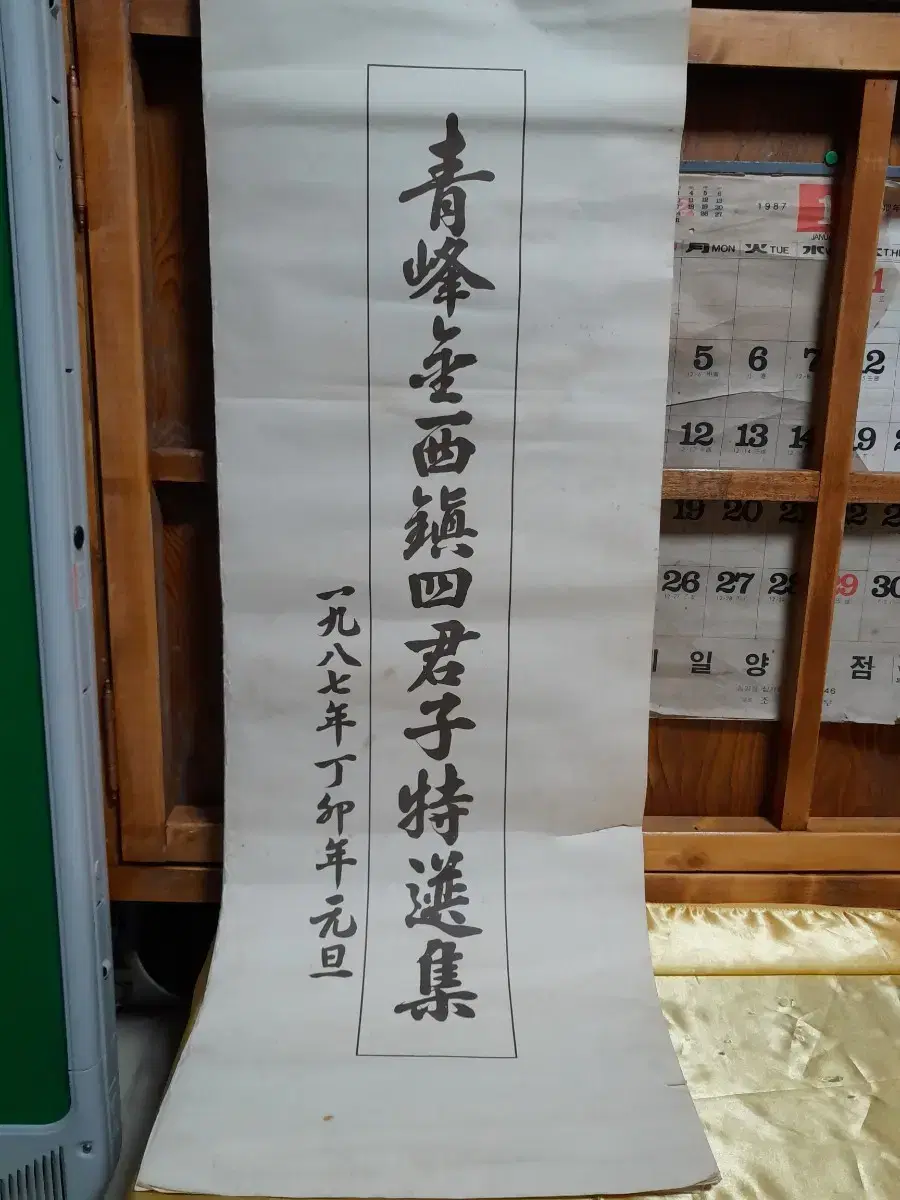 青峰金西鎮四君子特選集
一九八七年丁卯年元旦
1987
月MON 火TUE
5 6 7
12 13 14 19
19 20 21 22
26 27 28 29 30
일 양 점